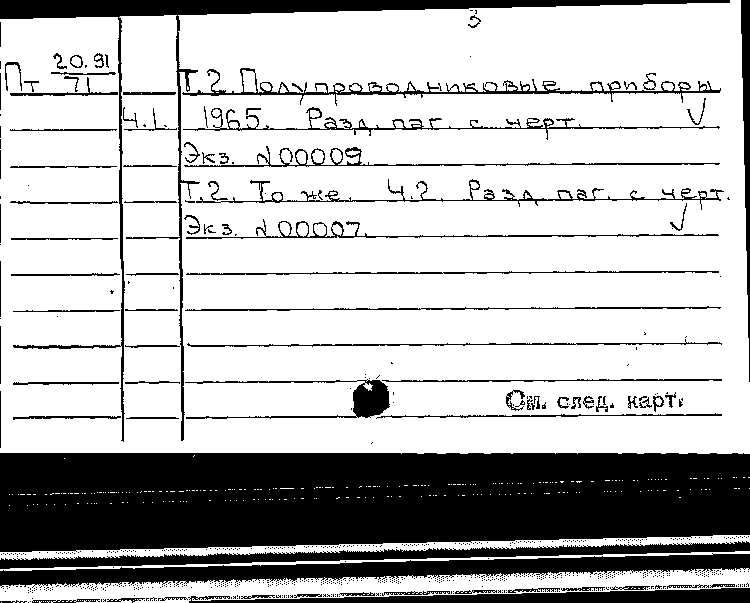 3
Пт 20.91
71
Т.2. Полупроводниковые приборы
Ч.1. 1965. Разд. паг. с черт. ✓
Экз. №00009.
Т.2. То же. Ч.2. Разд. паг. с черт.
Экз. №00007. ✓
См. след. карт.